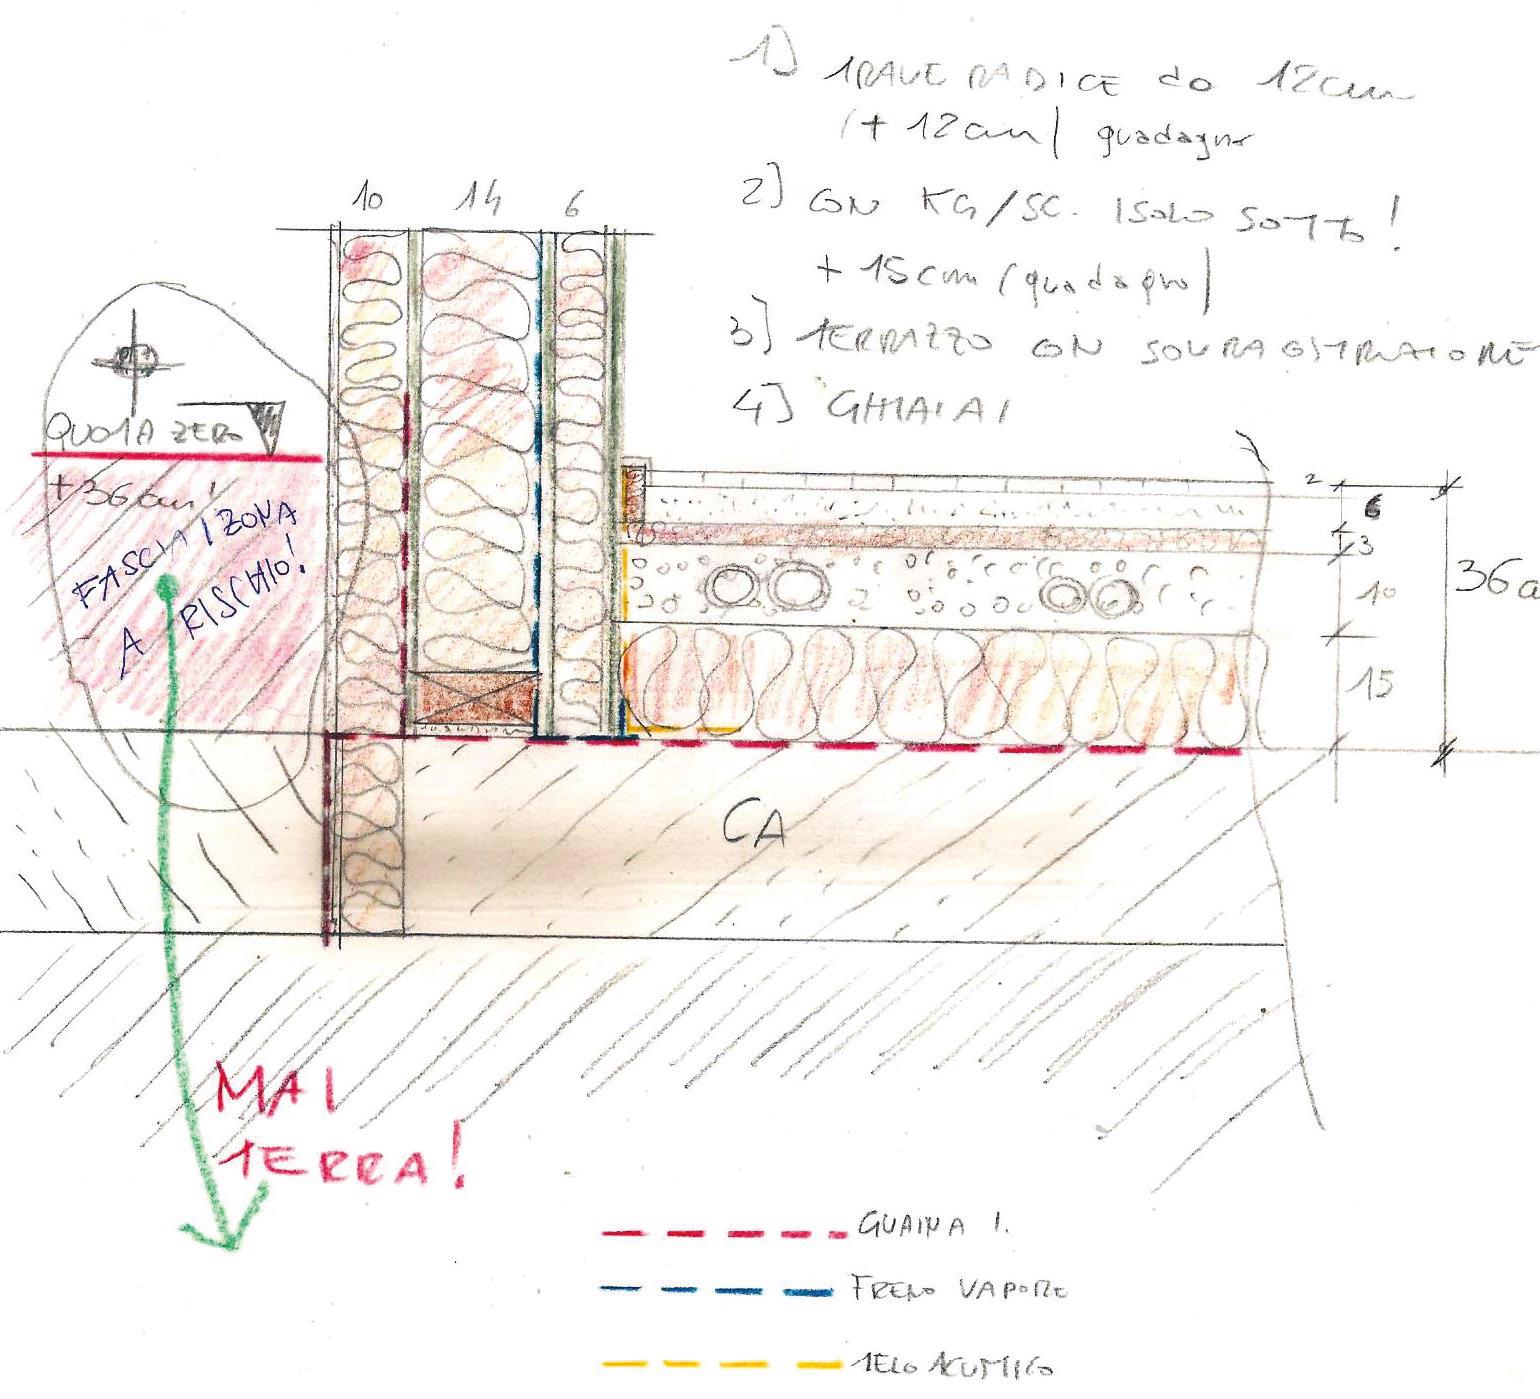 1) TRAVE RADICE da 12cm
(+ 12cm) guadagno
2) CON KG/SC. ISOLO SOTTO!
+ 15cm (guadagno)
3) TERRAZZO CON SOVRA
4) GHIAIA!
10 14 6
QUOTA ZERO
+36cm!
FASCIA/ZONA
A RISCHIO!
2
6
3
10
15
36c
CA
MAI
TERRA!
GUAINA I.
FRENO VAPORE
TELO ACUSTICO